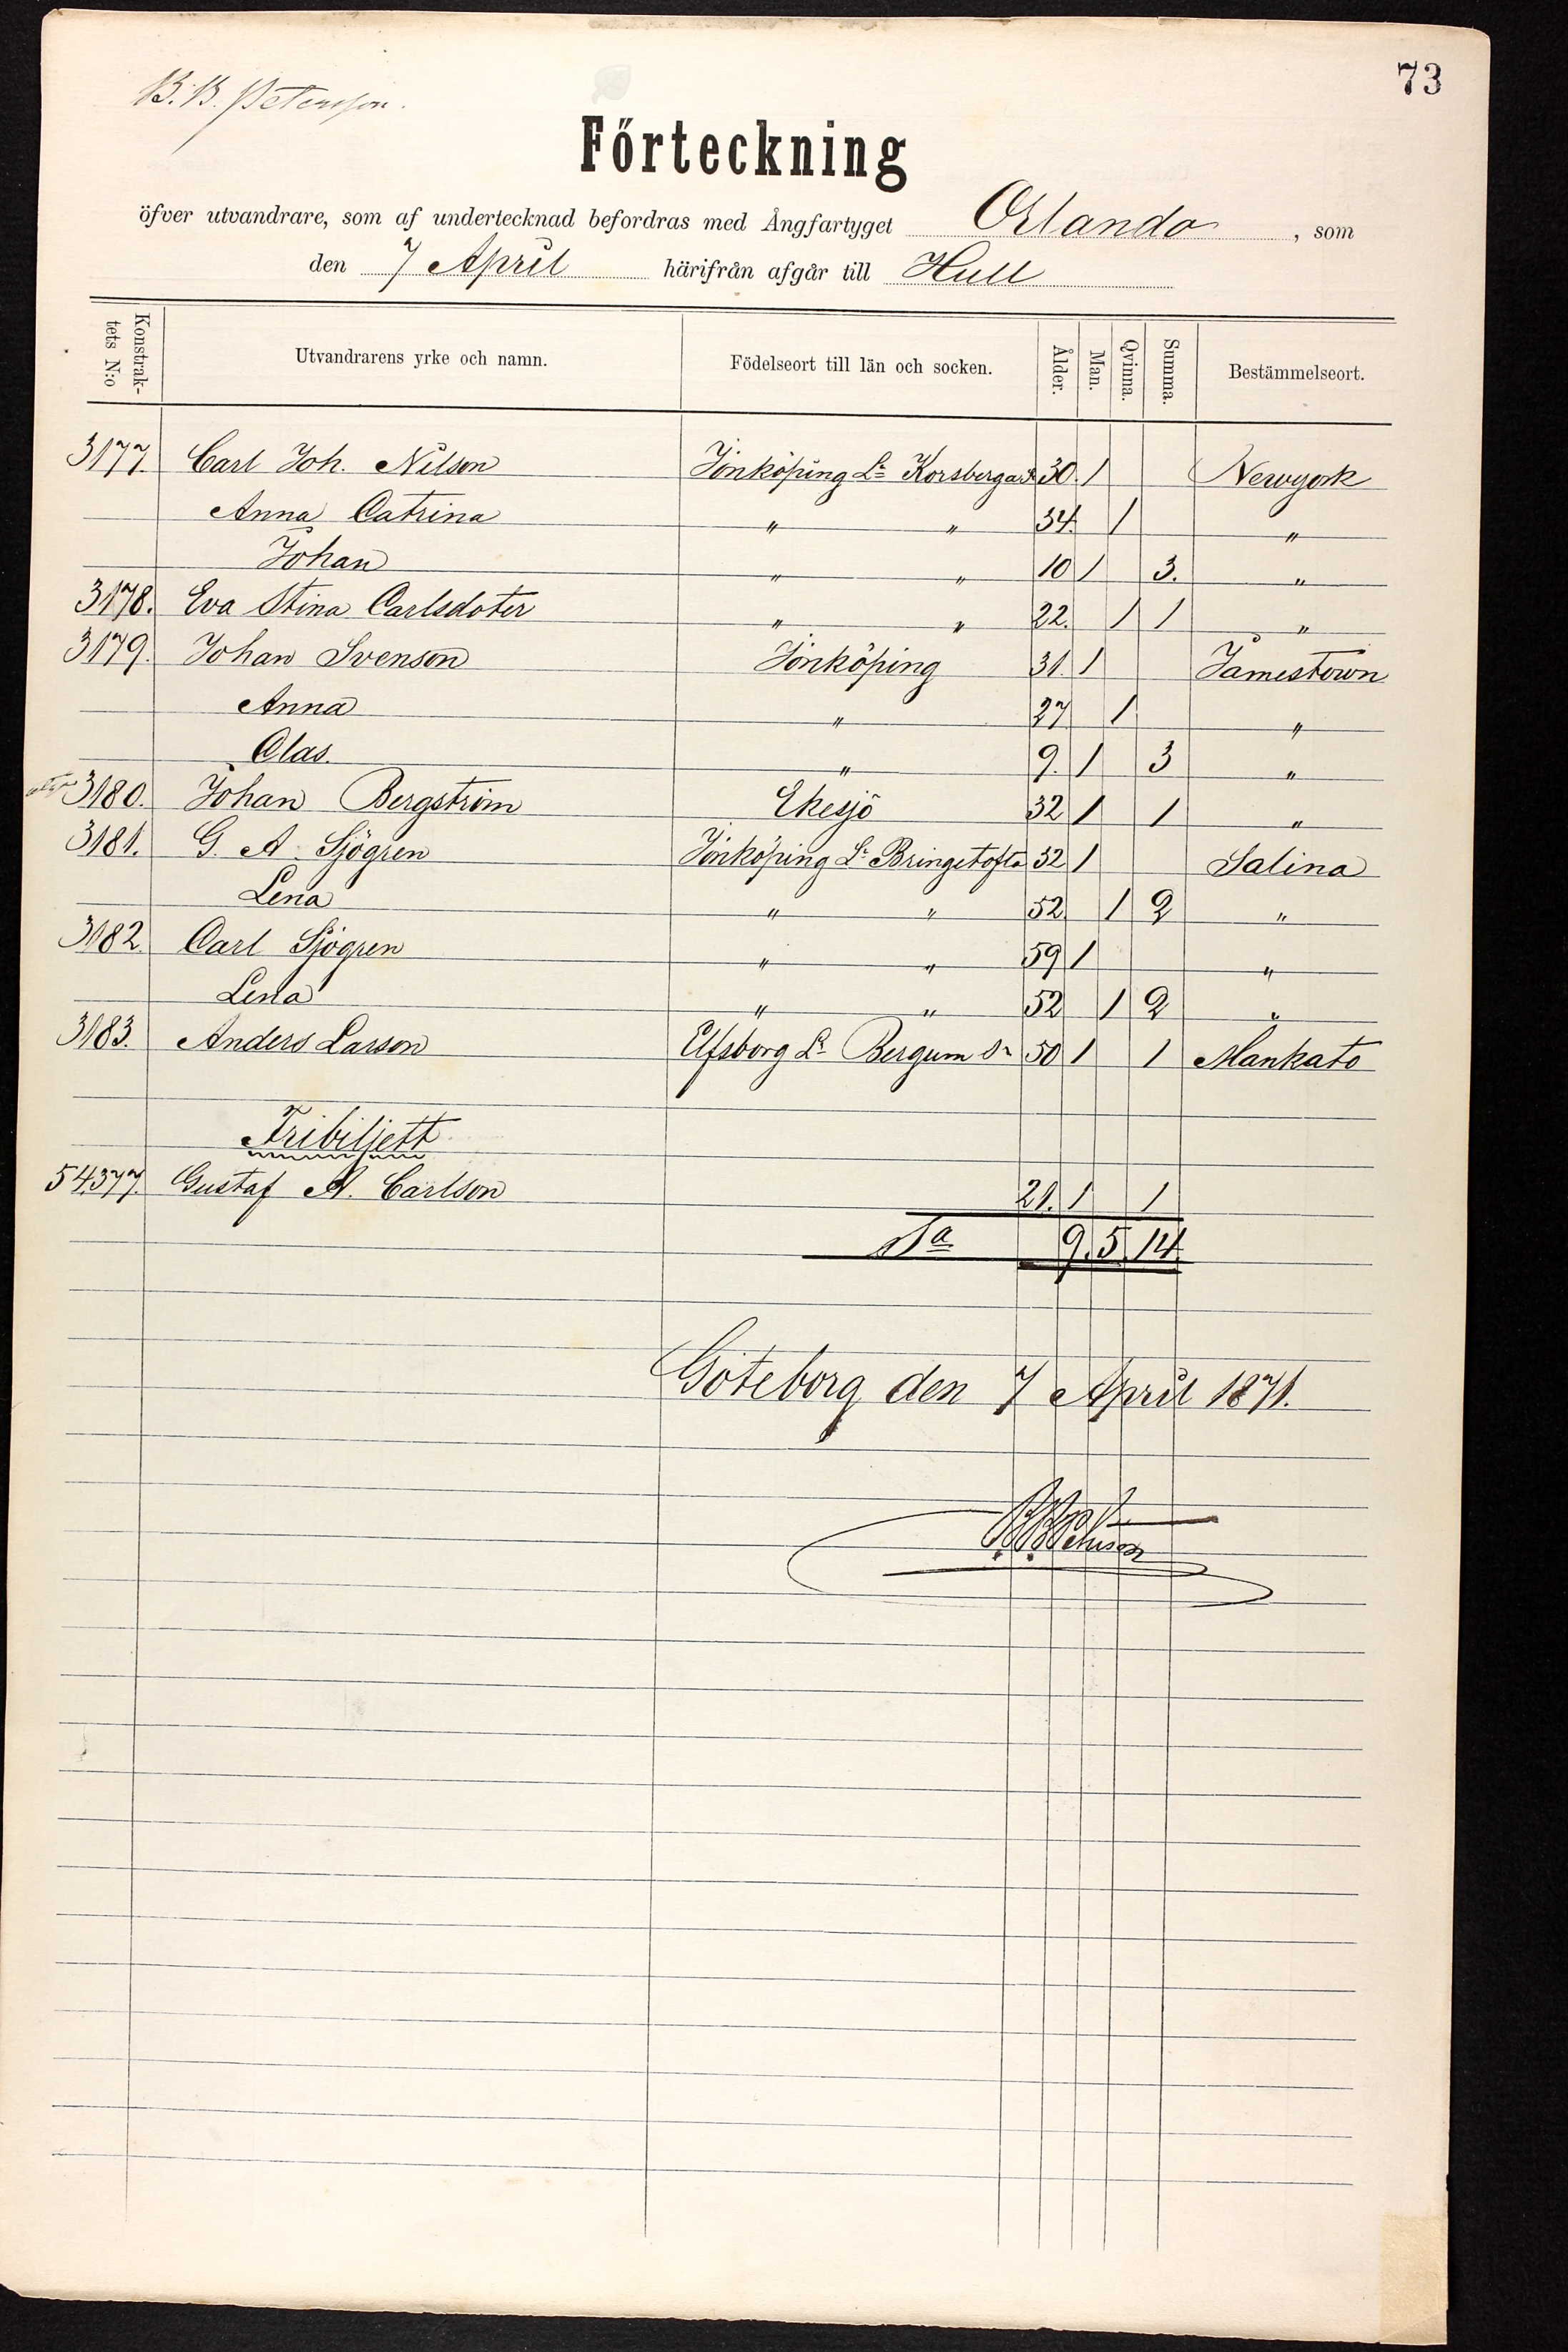 73
B. B. Peterson.
Förteckning
öfver utvandrare, som af undertecknad befordras med Ångfartyget Orlando, som
den 7 April härifrån afgår till Hull
Konstraktets N:o Utvandrarens yrke och namn. Födelseort till län och socken. Ålder. Man. Qvinna. Summa. Bestämmelseort.
3177. Carl Joh. Nilson Jönköping Ln Korsberga S. 30. 1 Newyork
Anna Catrina " " 34. 1 "
Johan " " 10 1 3. "
3178. Eva Stina Carlsdoter " " 22. 1 1 "
3179. Johan Svenson Jönköping 31. 1 Jamestown
Anna " 27 1 "
Clas. " 9. 1 3 "
3180. Johan Bergström Ekesjö 32 1 1 "
3181. G. A. Sjögren Jönköping Ln Bringetofta 32 1 Salina
Lena " " 52 1 2 "
3182. Carl Sjögren " " 59 1 "
Lena " " 52 1 2 "
3183. Anders Larson Elfsborg Ln Bergum Sn 50 1 1 Mankato
Fribiljett
54377. Gustaf A. Carlson 21. 1 1
Sa 9. 5. 14.
Göteborg den 7 April 1871.
B. B. Peterson